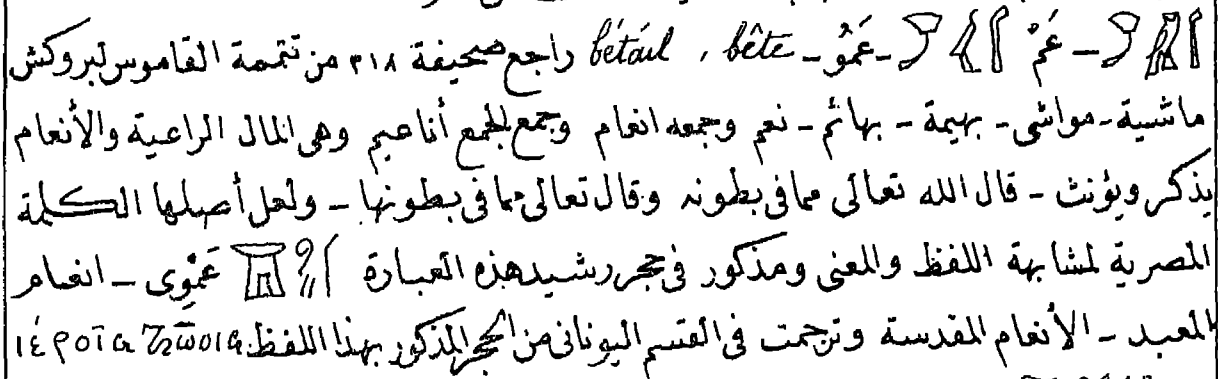 عَمْ - عَمُو - bétail , bête راجع صحيفة ٢١٨ من تتمة القاموس لبروكش
ماشية - مواشى - بهيمة - بهائم - نعم وجمعه انعام وجمع الجمع أناعيم وهى المال الراعية والأنعام
يذكر ويؤنث - قال الله تعالى مما فى بطونه وقال تعالى مما فى بطونها - ولعل أصلها الكلمة
المصرية لمشابهة اللفظ والمعنى ومذكور فى حجر رشيد هذه العبارة عَمْوِى - انعام
المعبد - الأنعام المقدسة وترجمت فى القسم اليونانى من الحجر المذكور بهذا اللفظ